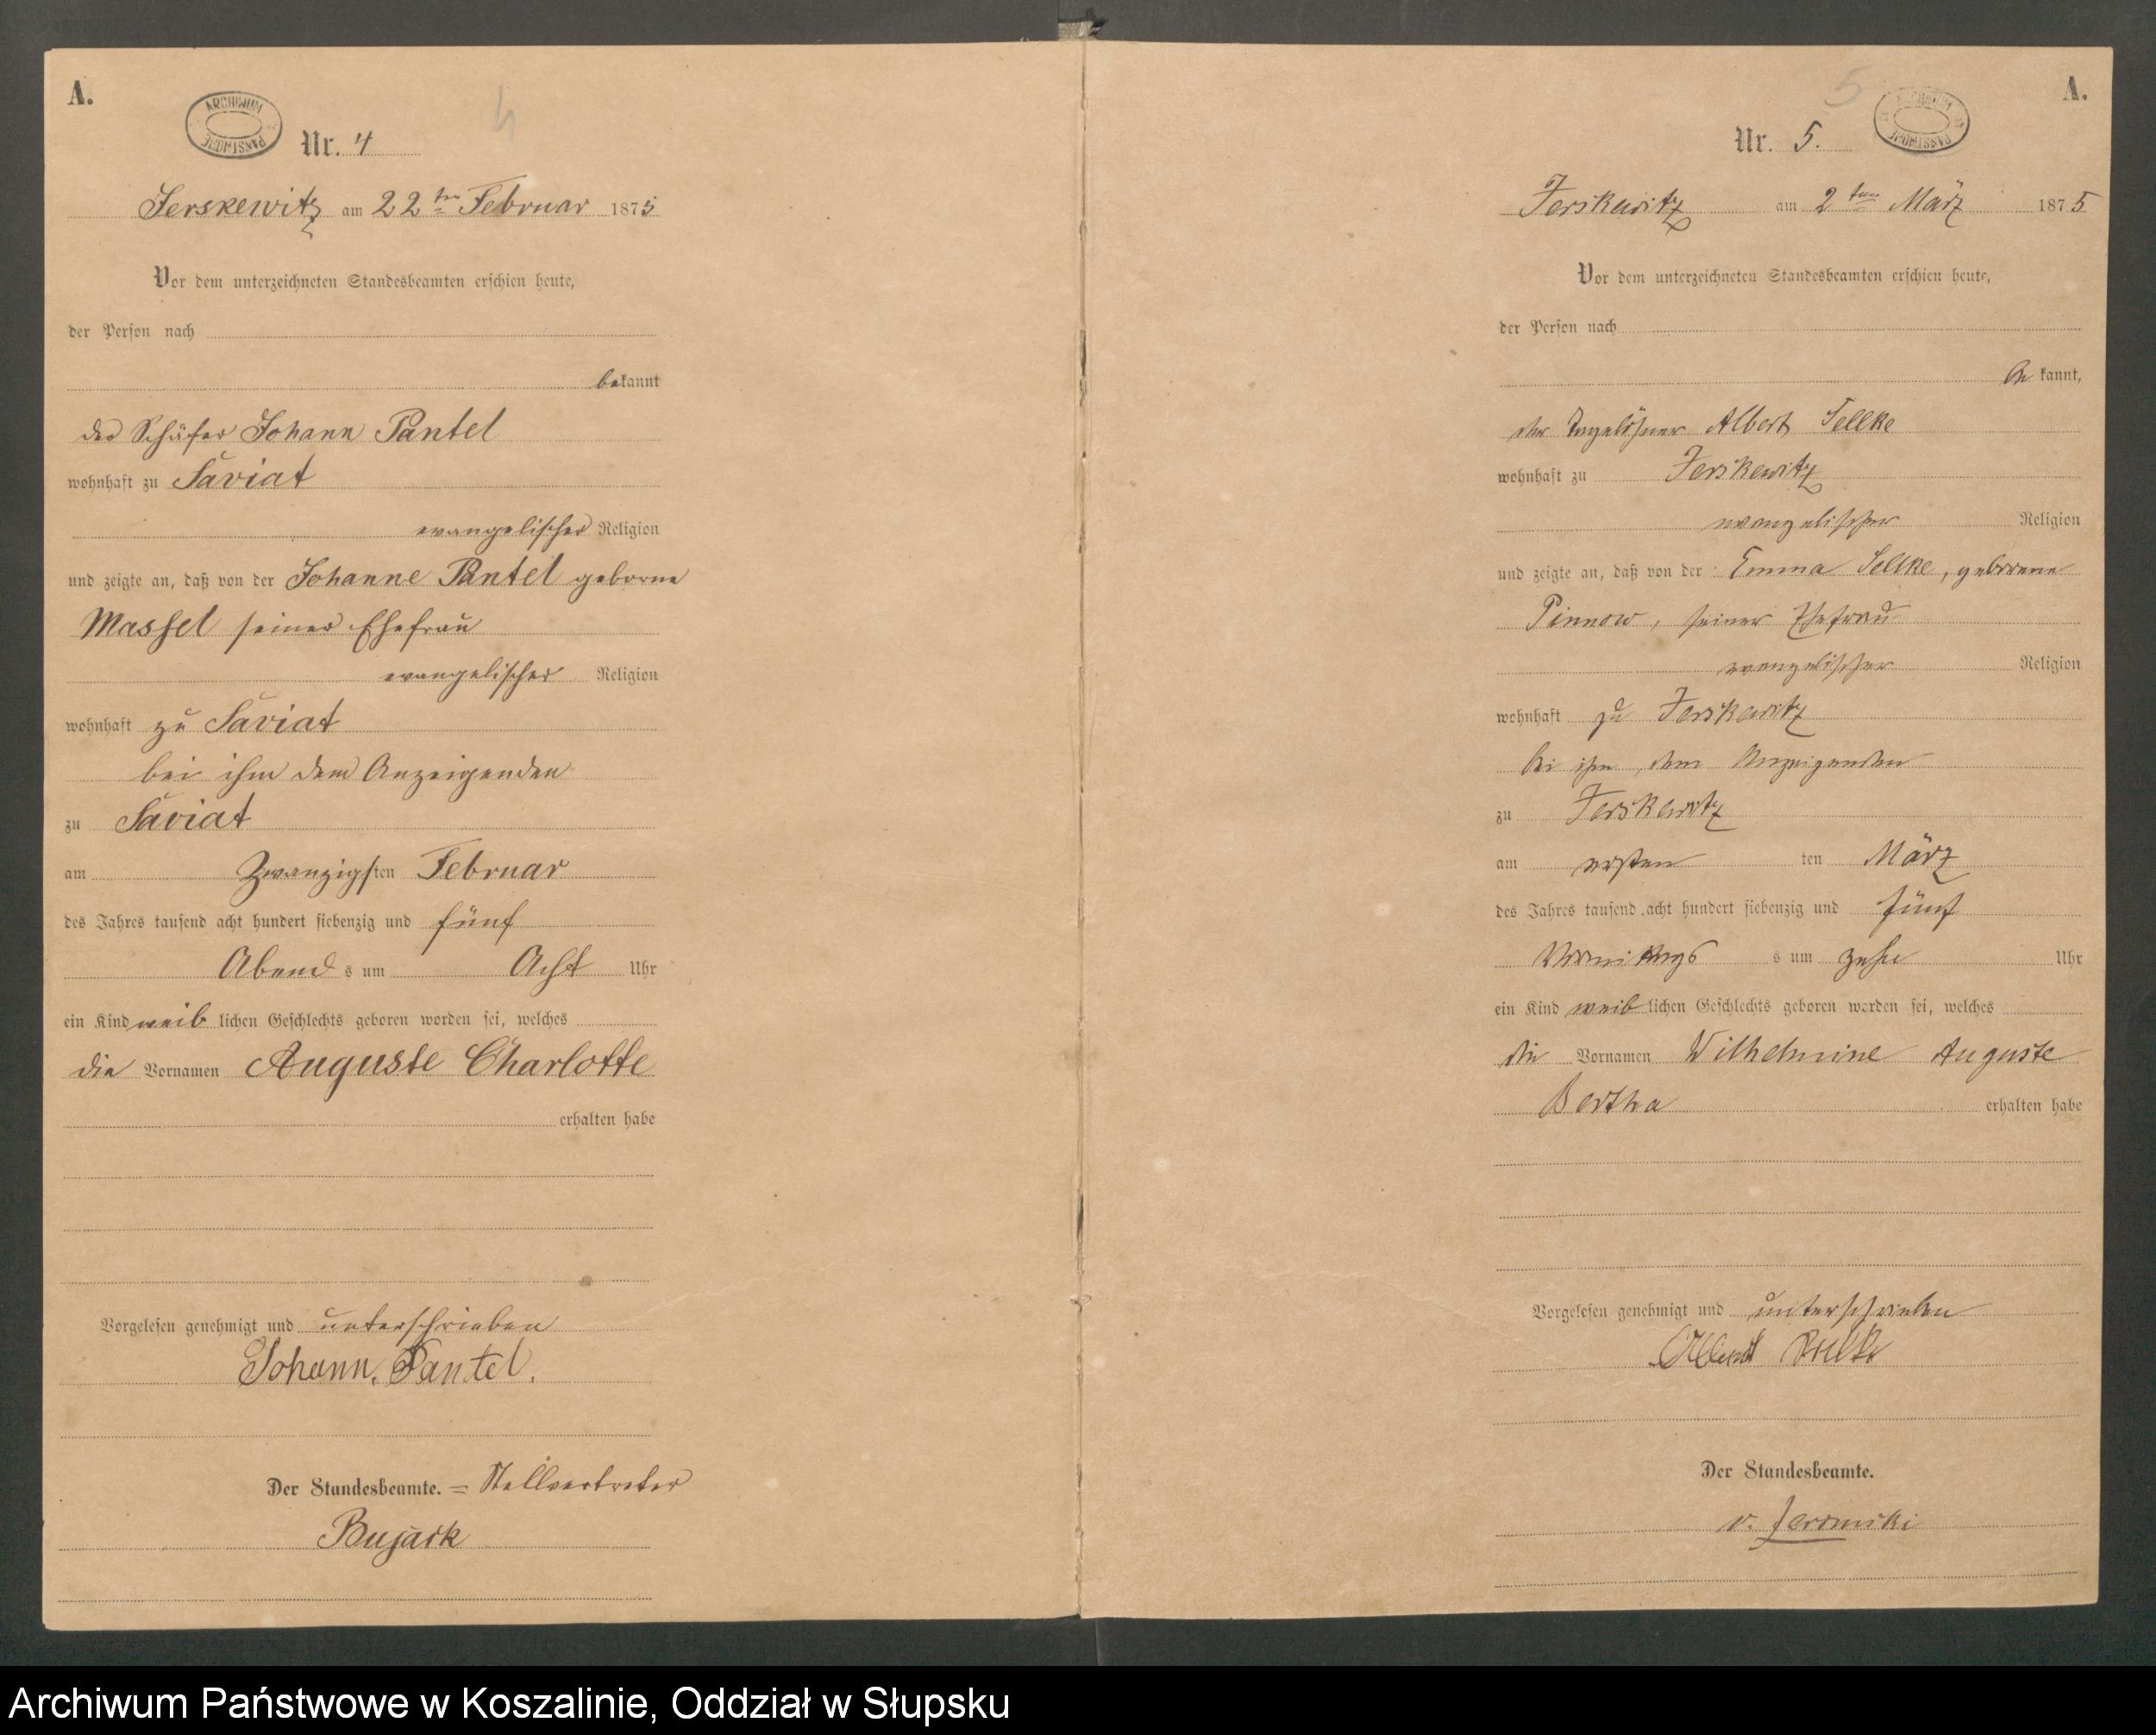 A.
ARCHIWUM PAŃSTWOWE
4
Nr. 4
Jerskewitz am 22ten Februar 1875
Vor dem unterzeichneten Standesbeamten erschien heute,
der Person nach
bekannt
der Schäfer Johann Pantel
wohnhaft zu Saviat
evangelischer Religion
und zeigte an, daß von der Johanne Pantel geborne
Massel seiner Ehefrau
evangelischer Religion
wohnhaft zu Saviat
bei ihm dem Anzeigenden
zu Saviat
am Zwanzigsten Februar
des Jahres tausend acht hundert siebenzig und fünf
Abends um Acht Uhr
ein Kind weiblichen Geschlechts geboren worden sei, welches
die Vornamen Auguste Charlotte
erhalten habe
Vorgelesen genehmigt und unterschrieben
Johann. Pantel.
Der Standesbeamte. = Stellvertreter
Bujack
A.
5
ARCHIWUM PAŃSTWOWE
Nr. 5.
Jerskewitz am 2ten März 1875
Vor dem unterzeichneten Standesbeamten erschien heute,
der Person nach
bekannt,
der Tagelöhner Albert Sellke
wohnhaft zu Jerskewitz
evangelischer Religion
und zeigte an, daß von der Emma Sellke, geborene
Pinnow, seiner Ehefrau
evangelischer Religion
wohnhaft zu Jerskewitz
bei ihm, dem Anzeigenden
zu Jerskewitz
am ersten ten März
des Jahres tausend acht hundert siebenzig und fünf
Vormittags s um zehn Uhr
ein Kind weiblichen Geschlechts geboren worden sei, welches
die Vornamen Wilhelmine Auguste
Bertha erhalten habe
Vorgelesen genehmigt und unterschrieben
Albert Sellke
Der Standesbeamte.
v.
Archiwum Państwowe w Koszalinie, Oddział w Słupsku